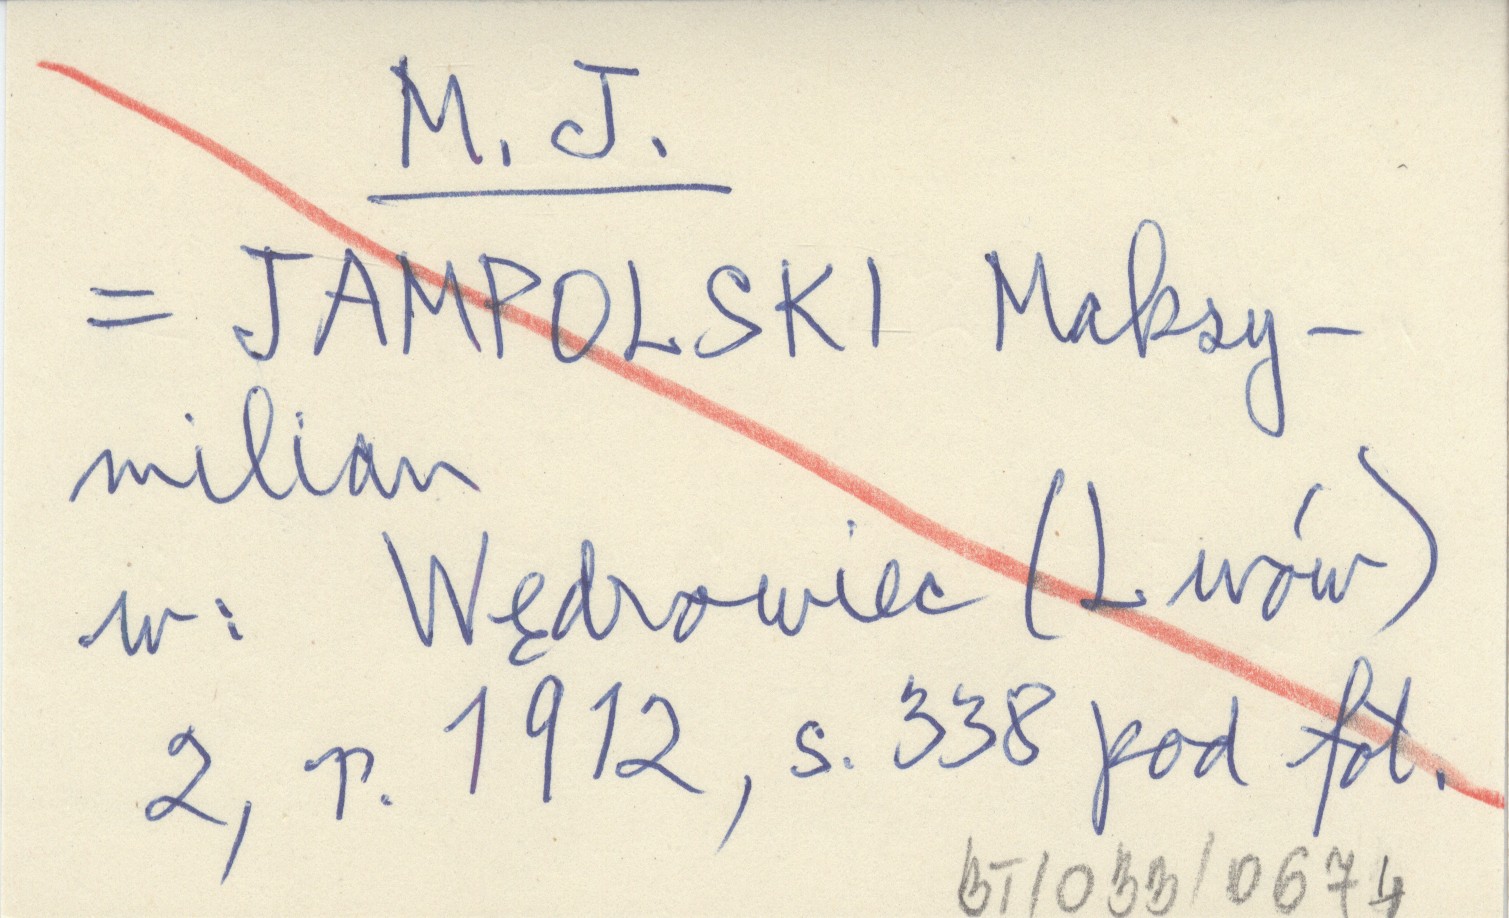 M. J.
= JAMPOLSKI Maksy-
milian
w: Wędrowiec (Lwów)
2, r. 1912, s. 338 pod fot.
BT/033/0674